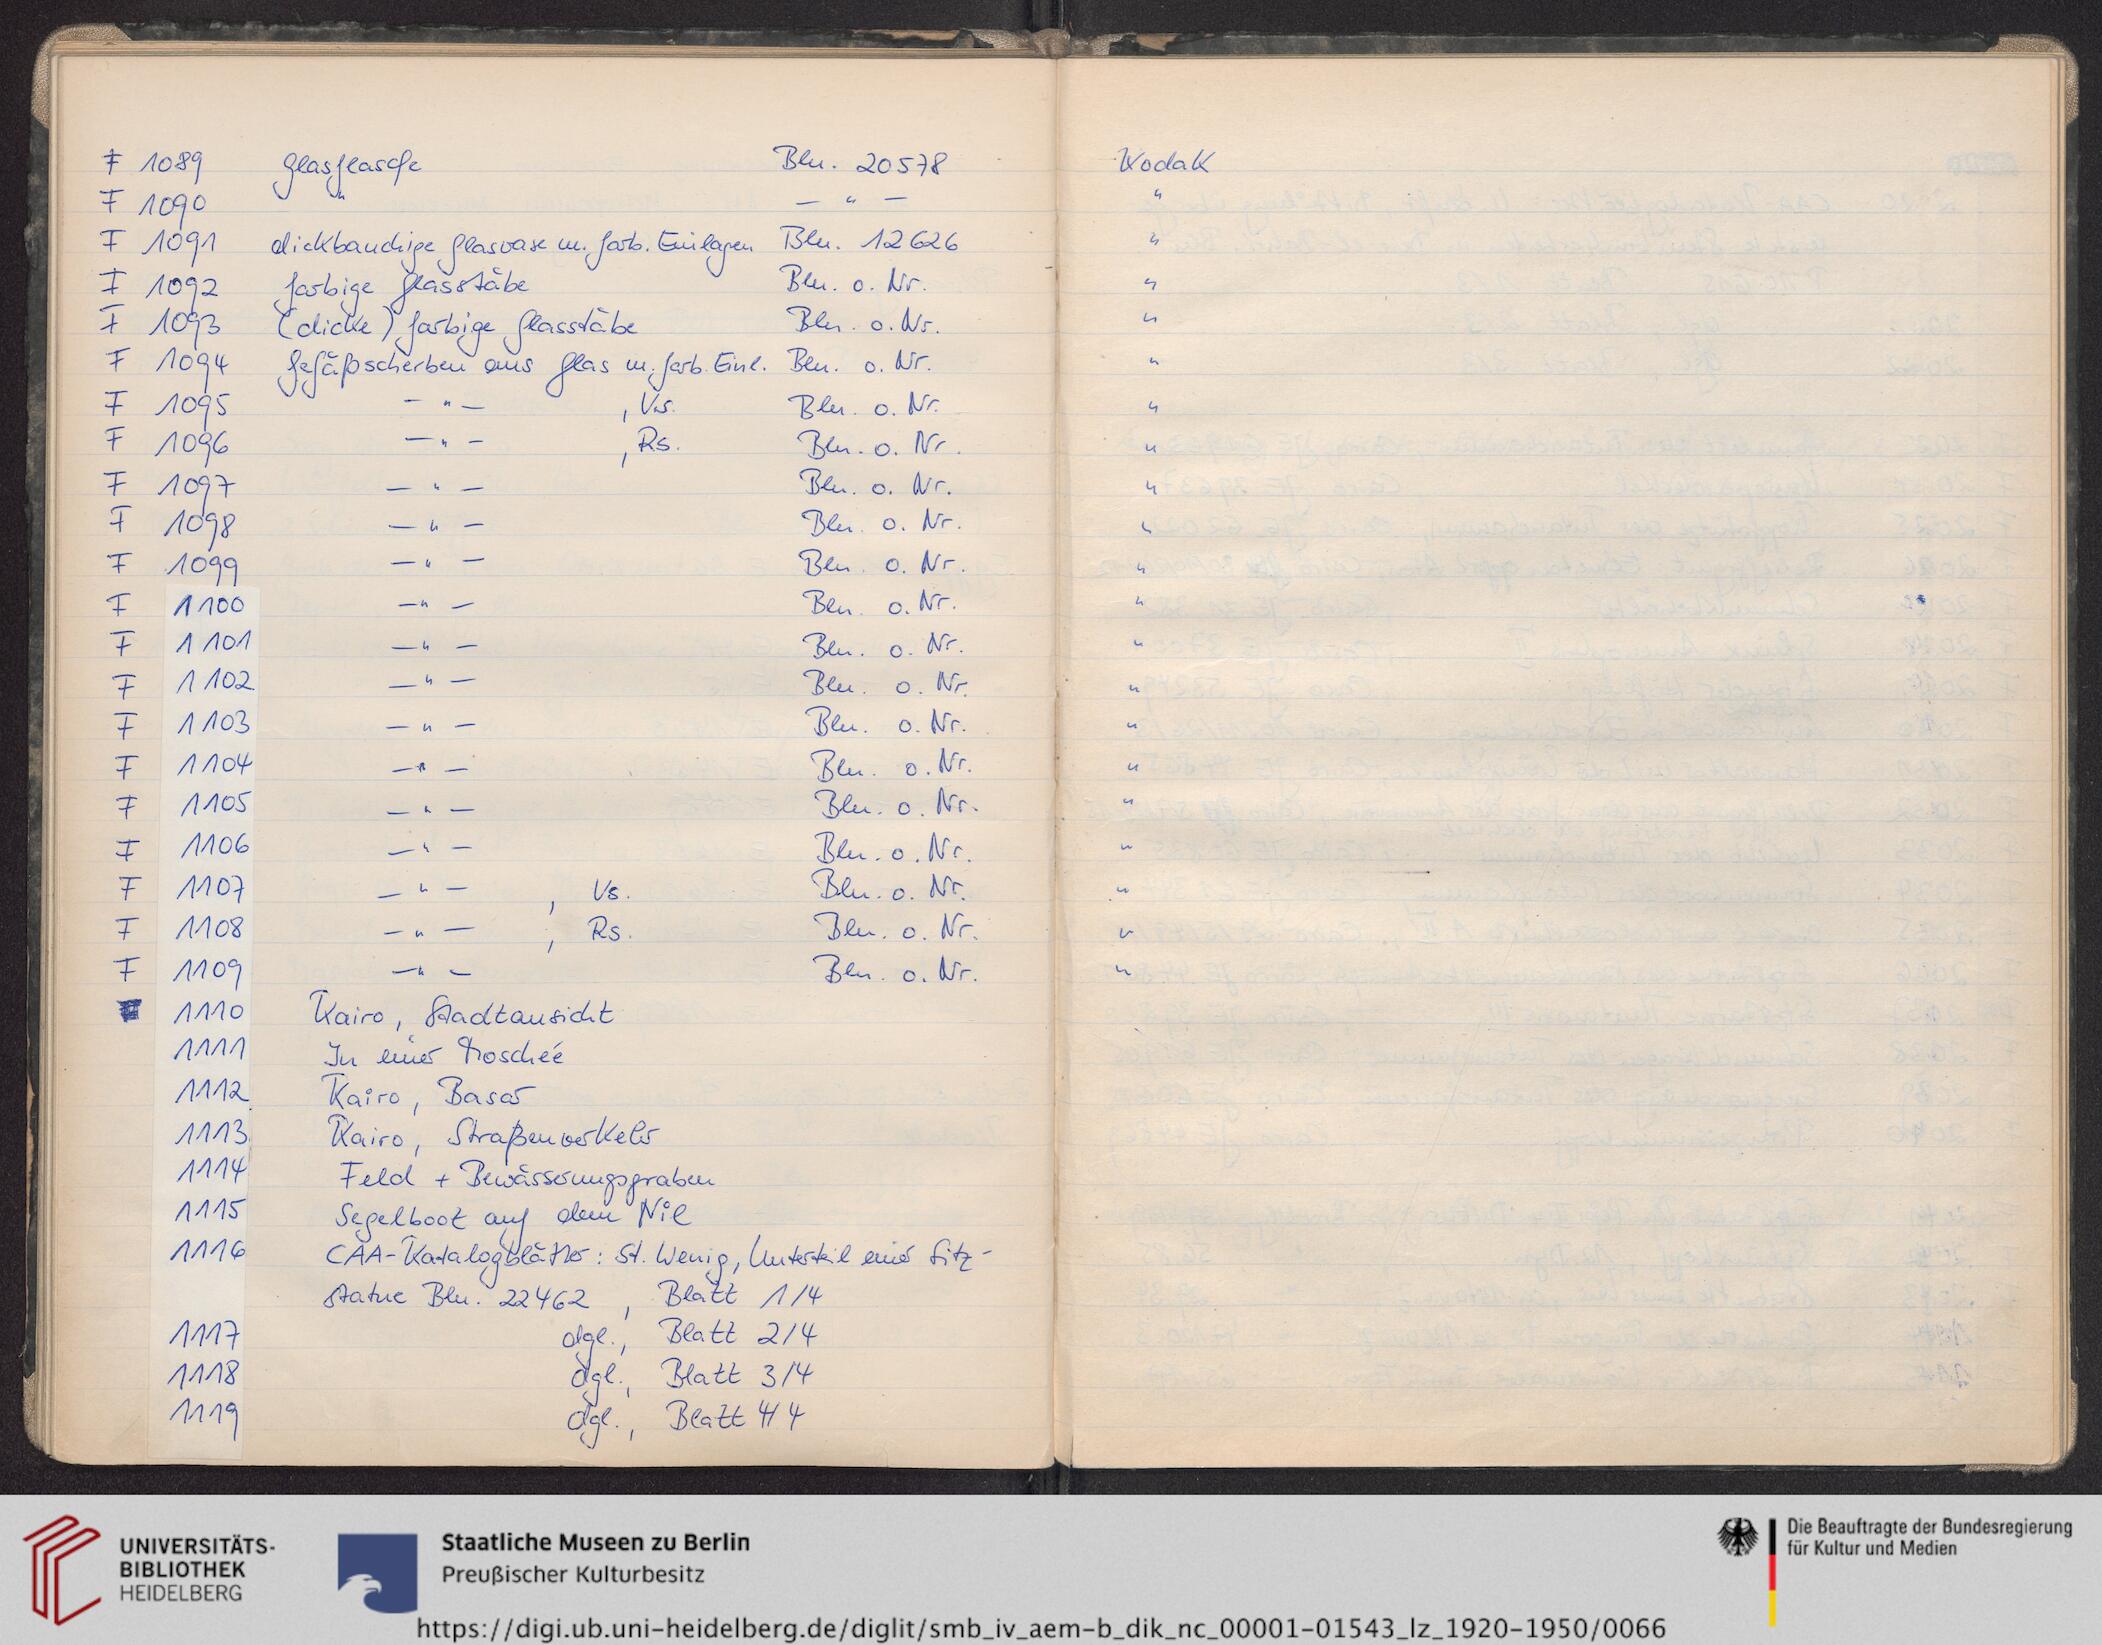 F 1089 Glasflasche Bln. 20578 Kodak
F 1090 " — " — "
F 1091 dickbauchige Glasvase m. farb. Einlagen Bln. 12626 "
F 1092 farbige Glasstäbe Bln. o. Nr. "
F 1093 (dicke) farbige Glasstäbe Bln. o. Nr. "
F 1094 Gefäßscherben aus Glas m. farb. Einl. Bln. o. Nr. "
F 1095 — " — , Vs. Bln. o. Nr. "
F 1096 — " — , Rs. Bln. o. Nr. "
F 1097 — " — Bln. o. Nr. "
F 1098 — " — Bln. o. Nr. "
F 1099 — " — Bln. o. Nr. "
F 1100 — " — Bln. o. Nr. "
F 1101 — " — Bln. o. Nr. "
F 1102 — " — Bln. o. Nr. "
F 1103 — " — Bln. o. Nr. "
F 1104 — " — Bln. o. Nr. "
F 1105 — " — Bln. o. Nr. "
F 1106 — " — Bln. o. Nr. "
F 1107 — " — , Vs. Bln. o. Nr. "
F 1108 — " — , Rs. Bln. o. Nr. "
F 1109 — " — Bln. o. Nr. "
1110 Kairo, Stadtansicht
1111 In einer Moschée
1112 Kairo, Basar
1113 Kairo, Straßenverkehr
1114 Feld + Bewässerungsgraben
1115 Segelboot auf dem Nil
1116 CAA-Katalogblätter: St. Wenig, Unterteil einer Sitz-
statue Bln. 22462 , Blatt 1/4
1117 dgl., Blatt 2/4
1118 dgl., Blatt 3/4
1119 dgl., Blatt 4/4
UNIVERSITÄTS-
BIBLIOTHEK
HEIDELBERG
Staatliche Museen zu Berlin
Preußischer Kulturbesitz
Die Beauftragte der Bundesregierung
für Kultur und Medien
https://digi.ub.uni-heidelberg.de/diglit/smb_iv_aem-b_dik_nc_00001-01543_lz_1920-1950/0066